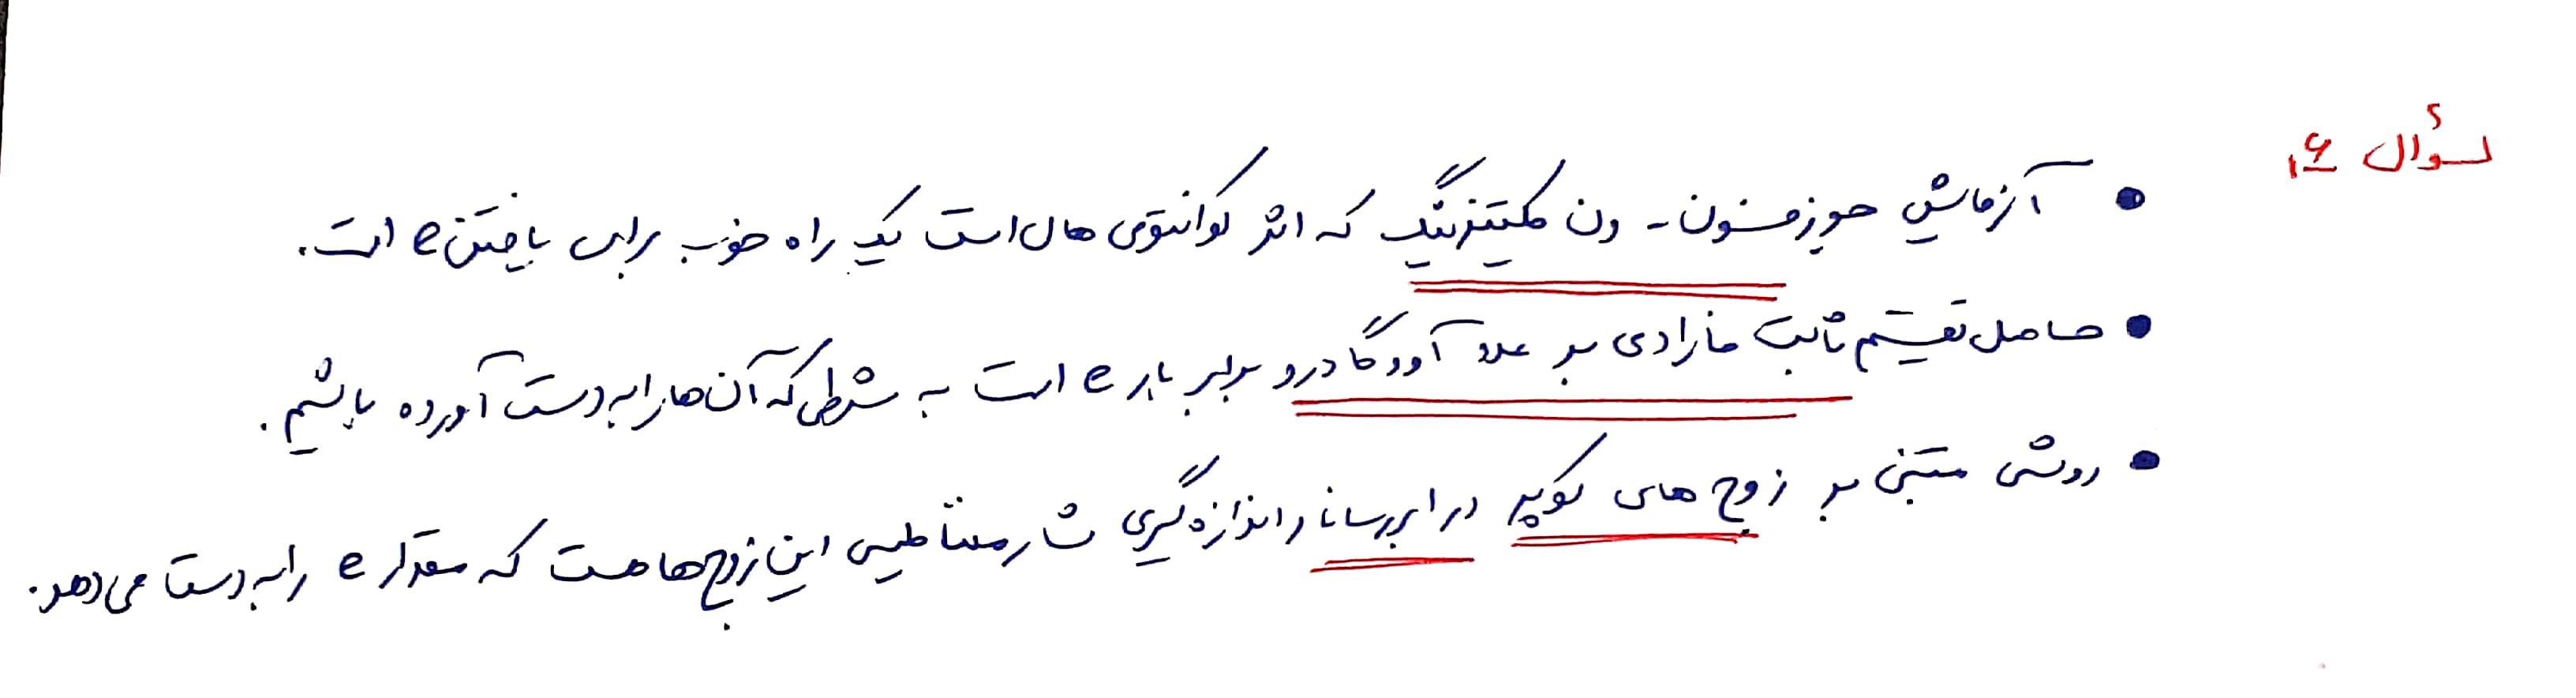 سؤال ۶.
• آزمایش جوزفسون - ون کلیتزینگ که اثر کوانتوی هال است یک راه خوب برای یافتن e است.
• حاصل تقسیم ثابت فارادی بر عدد آووگادرو برابر بار e است به شرطی که آن‌ها را به دست آورده باشیم.
• روشی مبتنی بر زوج های کوپر در ابررسانا و اندازه گیری شار مغناطیسی این زوج‌ها هست که مقدار e را به دست می‌دهد.